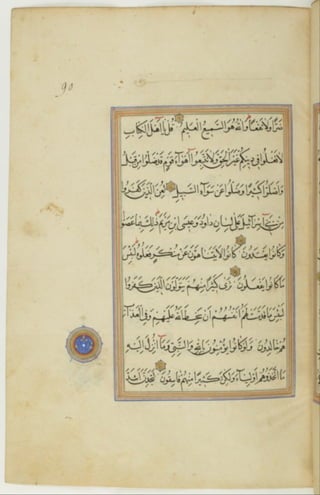 90
ضرا ولا نفعا والله هو السميع العليم قل يا اهل الكتاب
لا تغلوا في دينكم غير الحق ولا تتبعوا اهواء قوم قد ضلوا من قبل
واضلوا كثيرا وضلوا عن سواء السبيل لعن الذين كفروا
من بني اسرائيل على لسان داود وعيسى ابن مريم ذلك بما عصوا
وكانوا يعتدون كانوا لا يتناهون عن منكر فعلوه لبئس
ما كانوا يفعلون ترى كثيرا منهم يتولون الذين كفروا
لبئس ما قدمت لهم انفسهم ان سخط الله عليهم وفي العذاب
هم خالدون ولو كانوا يؤمنون بالله والنبي وما انزل اليه
ما اتخذوهم اولياء ولكن كثيرا منهم فاسقون لتجدن اشد